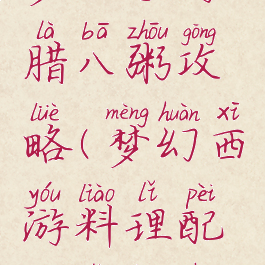 là bā zhōu gōng
腊八粥攻
lüè mèng huàn xī
略(梦幻西
yóu liào lǐ pèi
游料理配